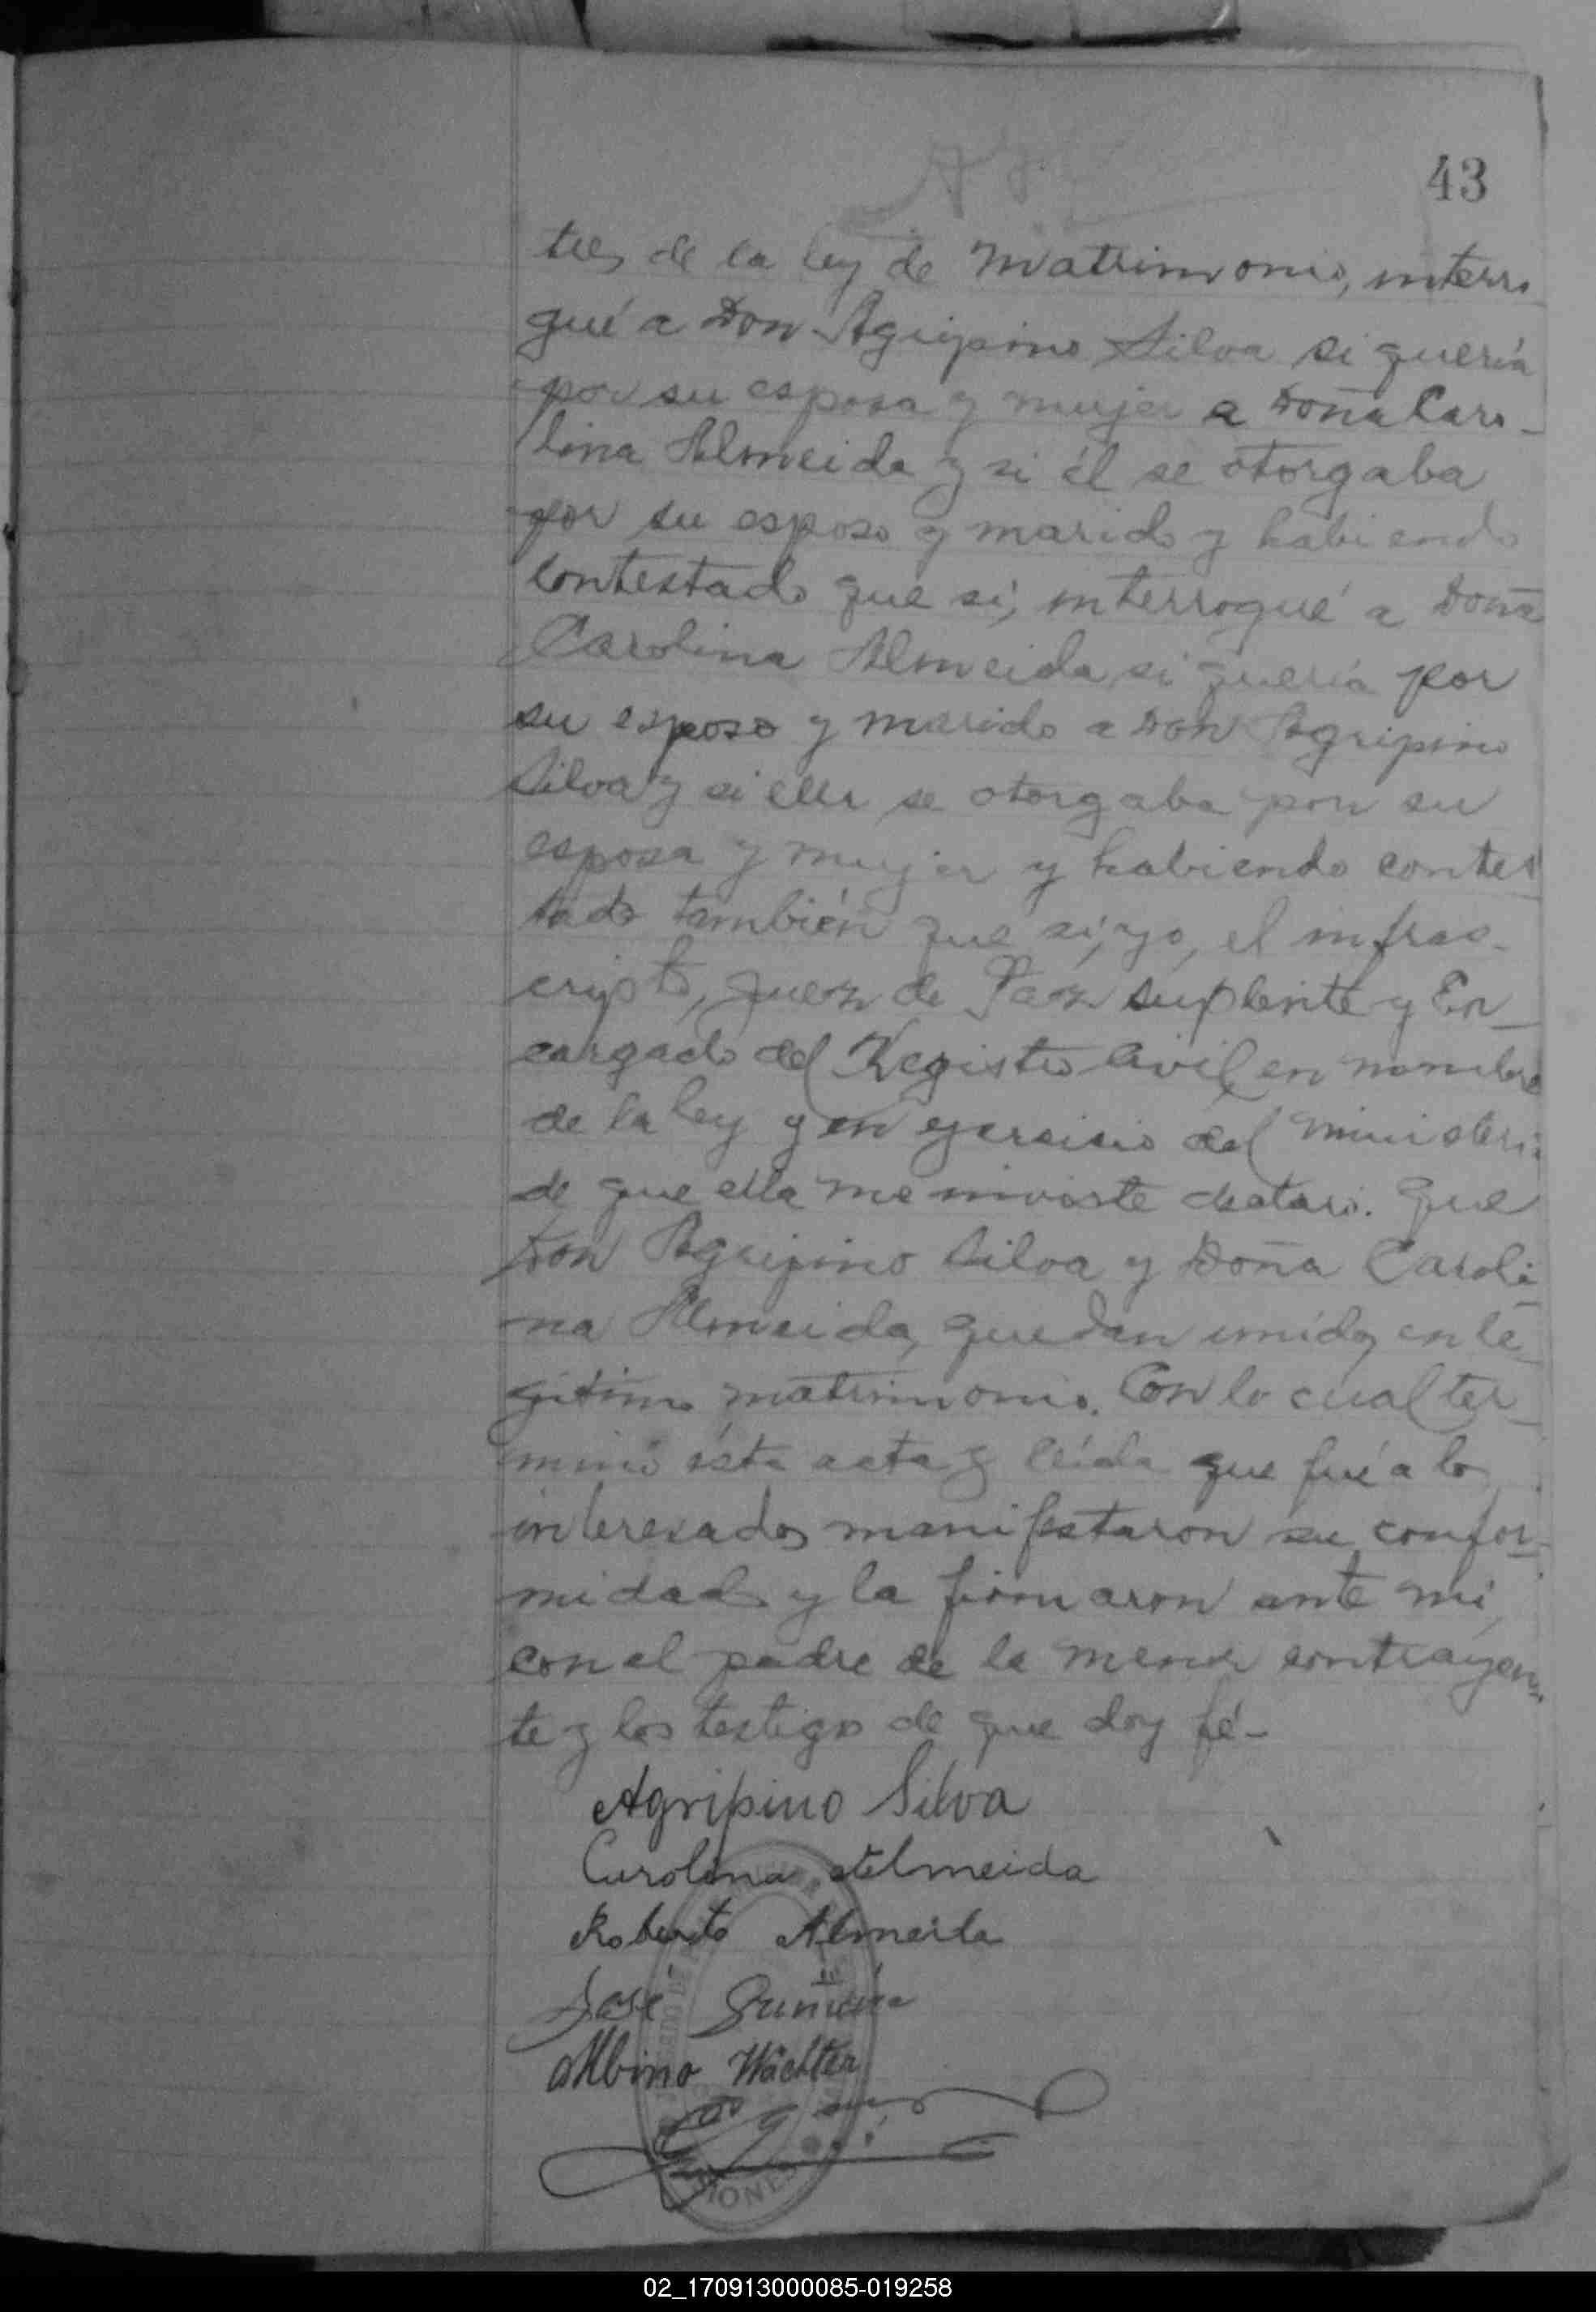 43
tes de la ley de Matrimonio, interro
gué a Don Agripino Silva si quería
por su esposa y mujer a Doña Caro-
lina Almeida y si él se otorgaba
por su esposo y marido y habiendo
contestado que si, interrogué a Doña
Carolina Almeida si quería por
su esposo y marido a Don Agripino
Silva y si ella se otorgaba por su
esposa y mujer y habiendo contes
tado también que sí, yo, el infras-
cripto, Juez de Paz suplente y En-
cargado del Registro Civil en nombre
de la ley y en ejersisio del ministerio
de que ella me inviste declaro. Que
Don Agripino Silva y Doña Caroli-
na Almeida, quedan unidos en le-
gítimo matrimonio. Con lo cual ter-
minó ésta acta y leída que fué a los
interesados manifestaron su confor-
midad y la firmaron ante mi,
con el padre de la menor contrayen-
te y los testigos de que doy fé-
Agripino Silva
Carolina Almeida
Roberto Almeida
José
Albino Wächter
02_170913000085-019258